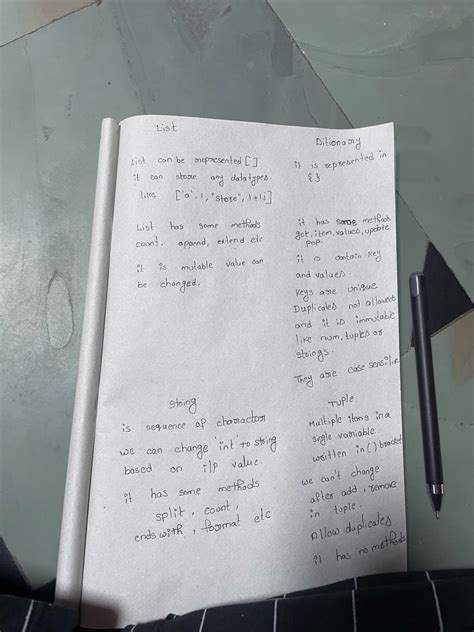 List
List can be represented []
it can store any datatypes.
like ['a', 1, "store", 1+1j]
List has some methods
count, append, extend etc
it is mutable value can
be changed.
Ditionary
it is represented in
{}
it has some methods
get, item, values, update
pop.
it is contain key
and values.
Keys are unique
Duplicates not allowed
and it is immutable
like num, tuples or
strings.
They are case sensitive
String
is sequence of charactor
we can change 'int' to string
based on i/p value.
it has some methods
split, count,
ends with, format etc
Tuple
Multiple items in a
single variable
written in () bracket
we can't change
after add, remove
in tuple.
Allow duplicates
it has no methods